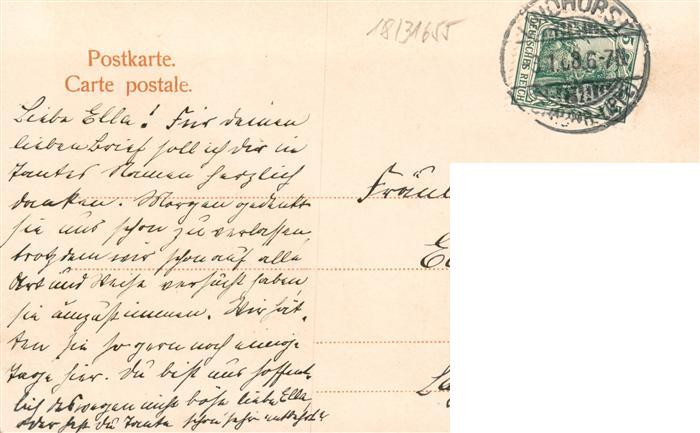 18/31655
Postkarte.
Carte postale.
DEUTSCHES REICH
5
1.08.6-7N.
Liebe Ella! Für deinen
lieben Brief soll ich dir in
Tantes Namen herzlich
danken. Morgen gedenkt
sie uns schon zu verlassen
trotzdem wir schon auf alle
Art und Weise versucht haben
sie umzustimmen. Wir hät-
ten sie so gern noch einige
Tage hier. Du bist uns hoffent-
lich deswegen nicht böse liebe Ella
oder hast du Tante schon sehr entbehrt?
Fräul